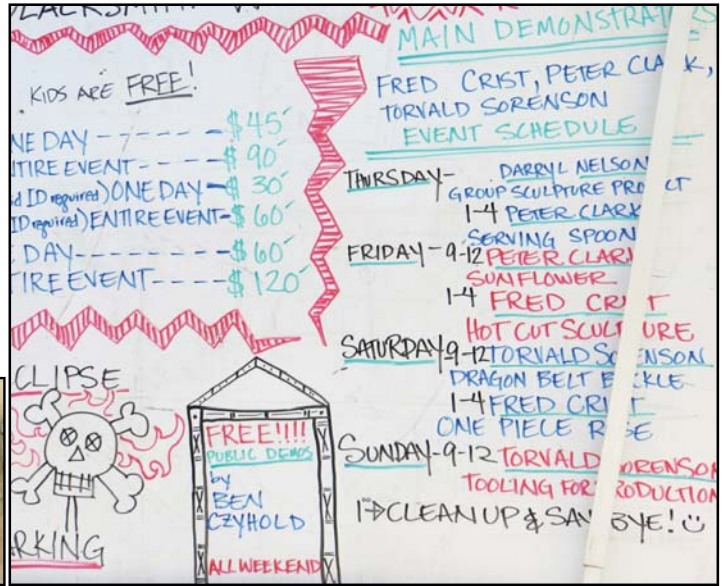 LACKSMITH W
KIDS ARE FREE!
NE DAY ------ $45
TIRE EVENT ---- $90
d ID required) ONE DAY - $30
ID required) ENTIRE EVENT - $60
DAY -------- $60
TIRE EVENT ---- $120
CLIPSE
ARKING
FREE!!!!
PUBLIC DEMOS
by
BEN
CZYHOLD
ALL WEEKEND
MAIN DEMONSTRATORS
FRED CRIST, PETER CLARK,
TORVALD SORENSON
EVENT SCHEDULE
THURSDAY - DARRYL NELSON
GROUP SCULPTURE PROJECT
1-4 PETER CLARK
SERVING SPOON
FRIDAY - 9-12 PETER CLARK
SUNFLOWER
1-4 FRED CRIST
HOT CUT SCULPTURE
SATURDAY 9-12 TORVALD SORENSON
DRAGON BELT BUCKLE
1-4 FRED CRIST
ONE PIECE ROSE
SUNDAY - 9-12 TORVALD SORENSON
TOOLING FOR PRODUCTION
1 → CLEAN UP & SAY BYE! ☺